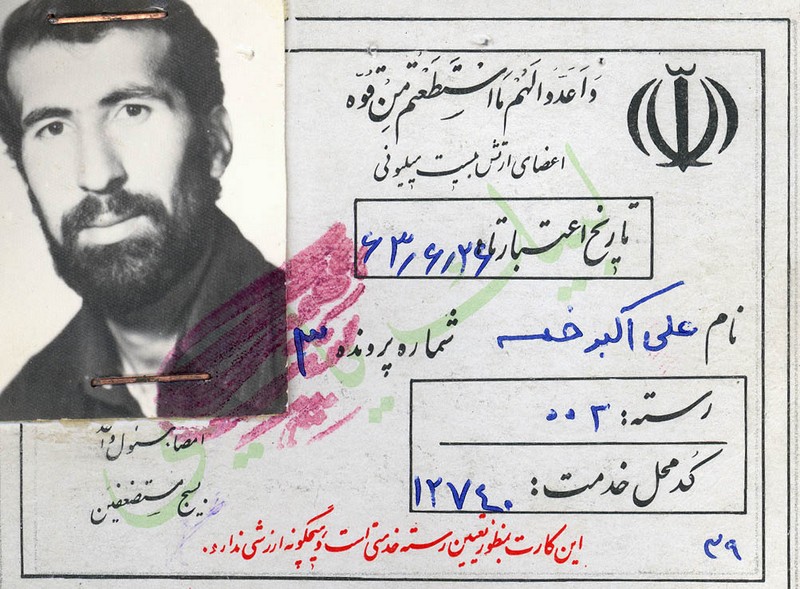 وَاَعَدّوالَهُم مَااستَطَعتُم مِن قُوّه
اعضای ارتش بیست میلیونی
تاریخ اعتبار تا ۶۳٫۶٫۲۶
نام علی اکبر خمسه
شماره پرونده ۳
رسته: ۰۰۲
کُد محل خدمت: ۱۲۷۴۰
امضا مسئول واحد
بسیج مستضعفین
این کارت بمنظور تعیین رسته خدمتی است و هیچگونه ارزشی ندارد.
۳۹